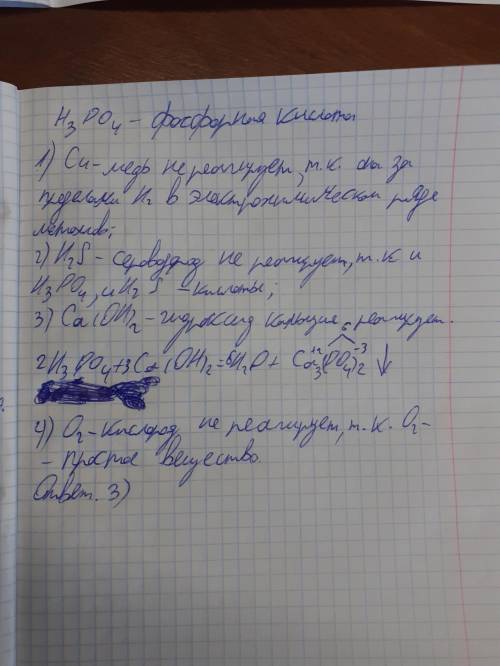 H₃PO₄ – фосфорная кислота
1) Cu – медь не реагирует, т.к. она за
пределами H₂ в электрохимическом ряде
металлов;
2) H₂S – сероводород не реагирует, т.к и
H₃PO₄, и H₂S – кислоты;
3) Ca(OH)₂ – гидроксид кальция реагирует.
6
2H₃PO₄ + 3Ca(OH)₂ = 6H₂O + Ca₃⁺²(PO₄)₂⁻³ ↓
4) O₂ – кислород не реагирует, т.к. O₂ –
– простое вещество.
Ответ. 3)